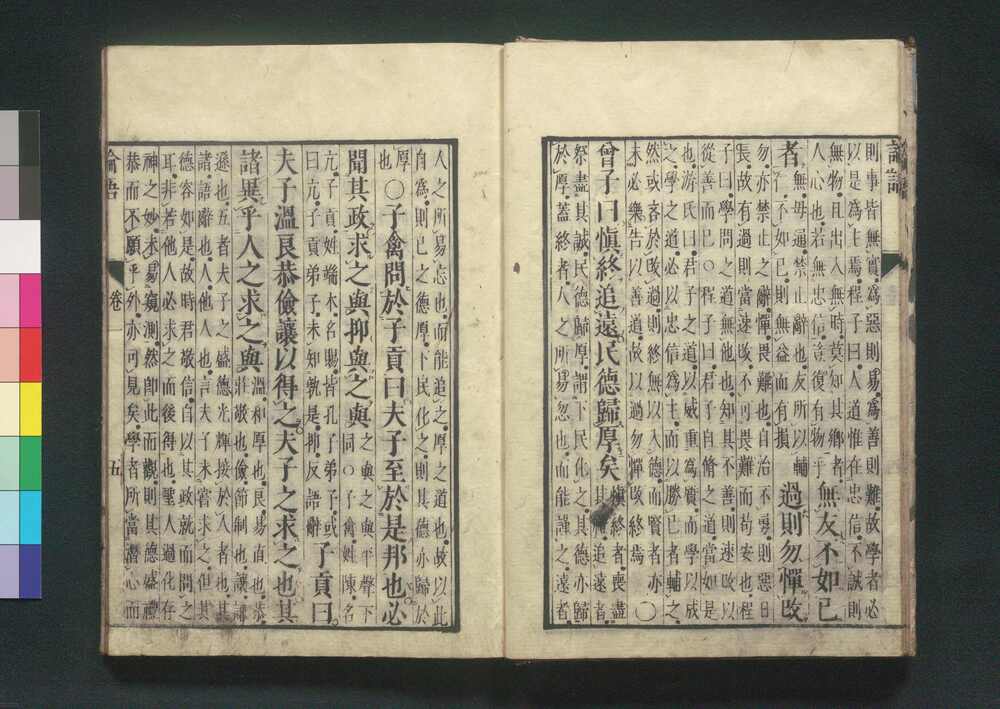 論語
則事皆無實爲惡則易爲善則難故學者必
以是爲主焉程子曰人道惟在忠信不誠則
無物且出入無時莫知其鄉者
人心也若無忠信豈復有物乎
無友不如己
者
無毋通禁止辭也友所以輔
仁不如己則無益而有損
過則勿憚改
勿亦禁止之辭憚畏難也自治不勇則惡日
長故有過則當速改不可畏難而苟安也程
子曰學問之道無他也知其不善則速改以
從善而已○程子曰君子自脩之道當如是
也游氏曰君子之道以威重爲質而學以成
之學之道必以忠信爲主而以勝己者輔之
然或吝於改過則終無以入德而賢者亦
未必樂告以善道故以過勿憚改終焉○
曾子曰愼終追遠民德歸厚矣
愼終者喪盡
其禮追遠者
祭盡其誠民德歸厚謂下民化之其德亦歸
於厚蓋終者人之所易忽也而能謹之遠者
人之所易忘也而能追之厚之道也故以此
自爲則己之德厚下民化之則其德亦歸於
厚
也
○子禽問於子貢曰夫子至於是邦也必
聞其政求之與抑與之與
之與之與平聲下
同○子禽姓陳名
亢子貢姓端木名賜皆孔子弟子或
曰亢子貢弟子未知孰是抑反語辭
子貢曰
夫子溫良恭儉讓以得之夫子之求之也其
諸異乎人之求之與
溫和厚也良易直也恭
莊敬也儉節制也讓謙
遜也五者夫子之盛德光輝接於人者也其
諸語辭也人他人也言夫子未嘗求之但其
德容如是故時君敬信自以其政就而問之
耳非若他人必求之而後得也聖人過化存
神之妙未易窺測然卽此而觀則其德盛禮
恭而不願乎外亦可見矣學者所當潛心而
論語
卷
五